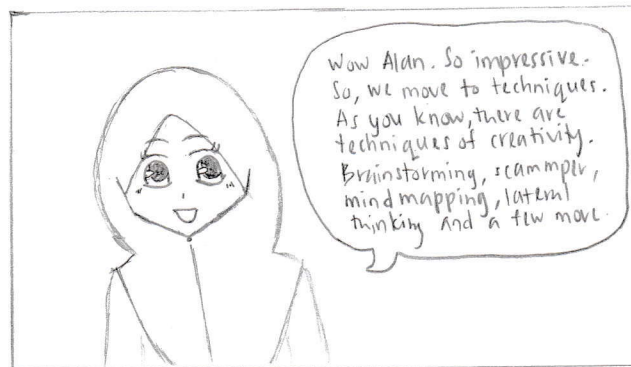 Wow Alan. So impressive.
So, we move to techniques.
As you know, there are
techniques of creativity.
Brainstorming, scammper,
mind mapping, lateral
thinking and a few more.